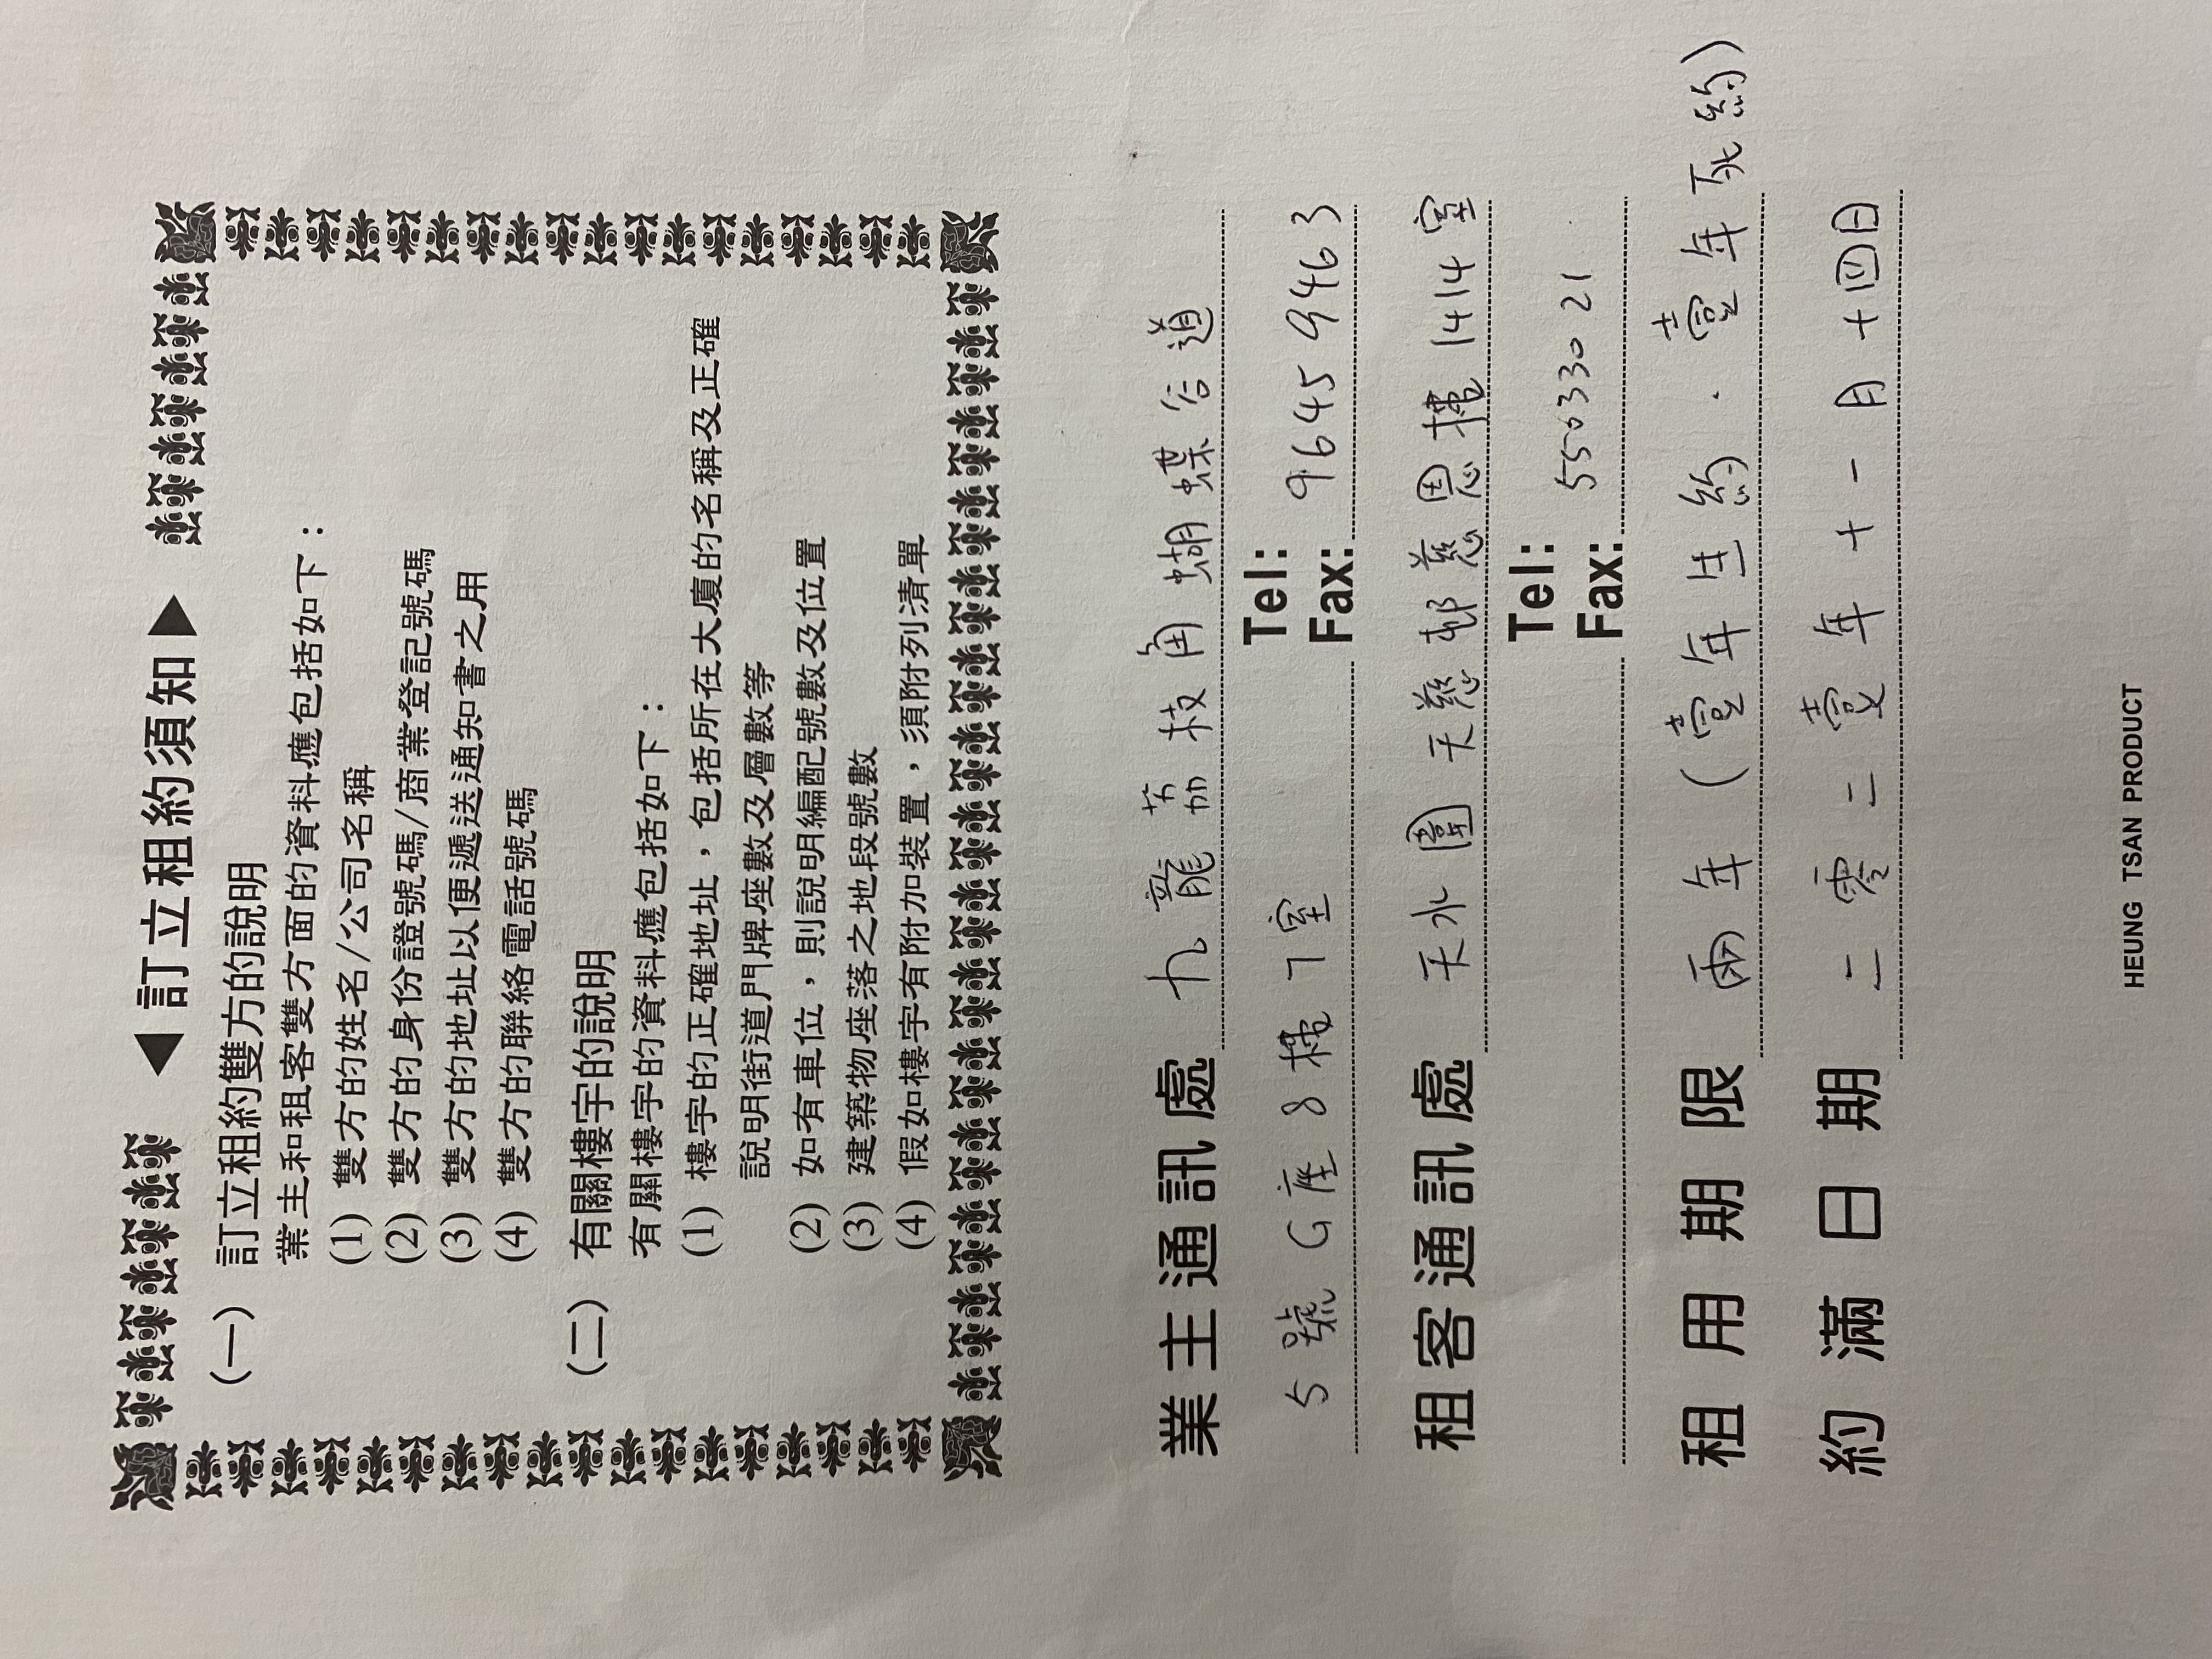 ◀訂立租約須知▶
(一) 訂立租約雙方的說明
業主和租客雙方面的資料應包括如下：
(1) 雙方的姓名/公司名稱
(2) 雙方的身份證號碼/商業登記號碼
(3) 雙方的地址以便遞送通知書之用
(4) 雙方的聯絡電話號碼
(二) 有關樓宇的說明
有關樓宇的資料應包括如下：
(1) 樓宇的正確地址，包括所在大廈的名稱及正確
說明街道門牌座數及層數等
(2) 如有車位，則說明編配號數及位置
(3) 建築物座落之地段號數
(4) 假如樓宇有附加裝置，須附列清單
業主通訊處 九龍荔枝角蝴蝶谷道
Tel:
5號G座8樓7室 Fax: 96459463
租客通訊處 天水圍天慈邨慈恩樓1414室
Tel: 55033021
Fax:
租用期限 兩年(壹年生約．壹年死約)
約滿日期 二零二壹年十一月十四日
HEUNG TSAN PRODUCT